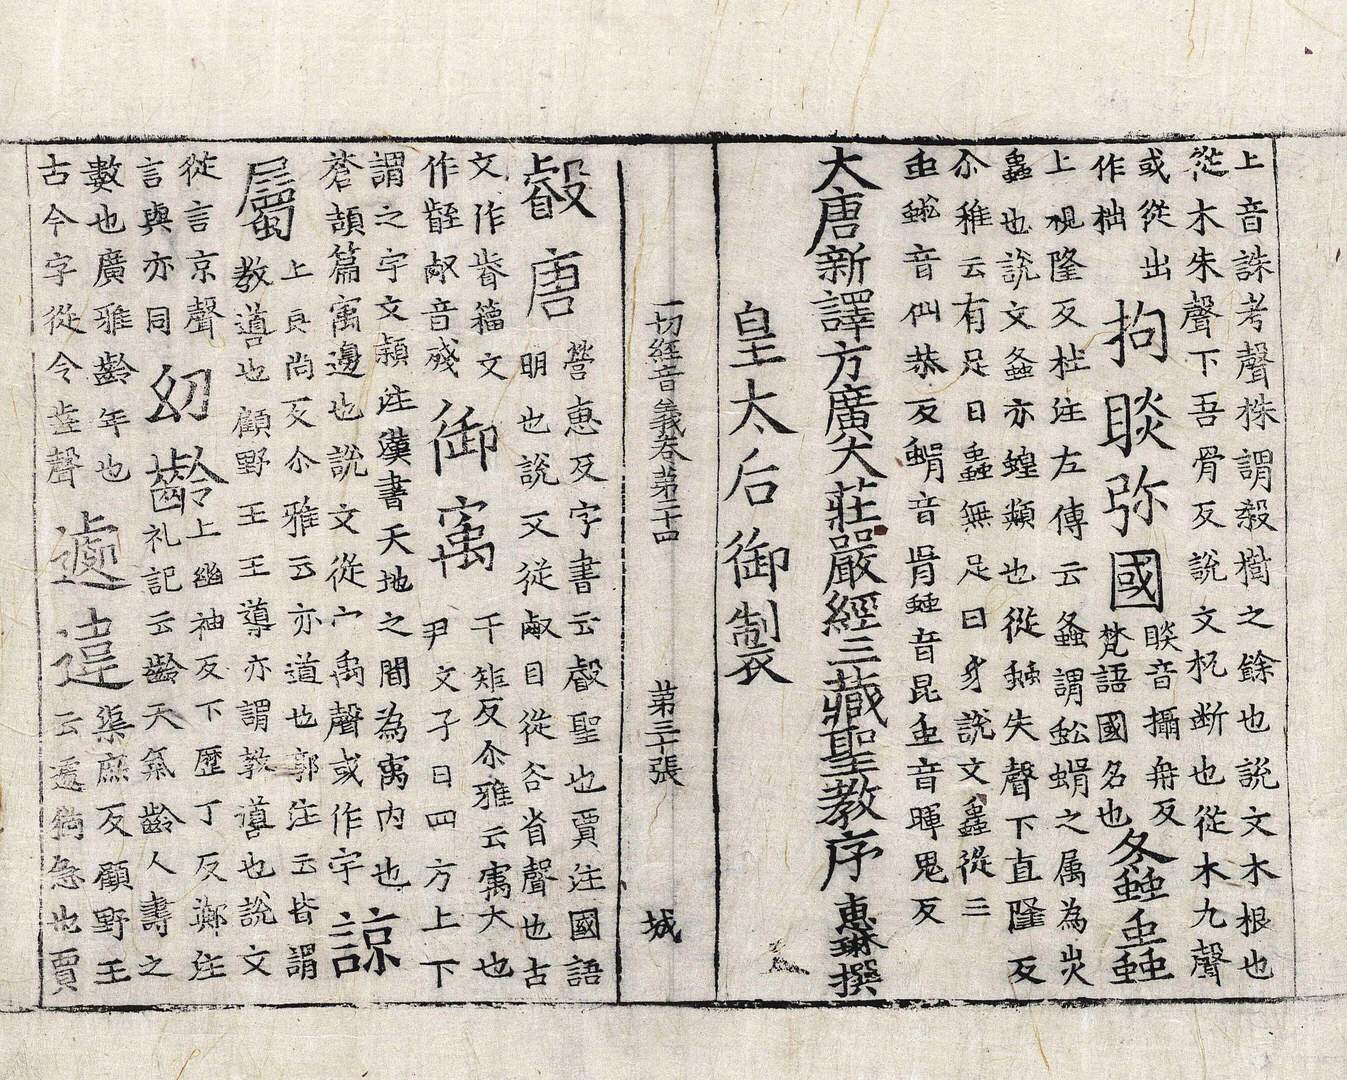 上音誅考聲株謂殺樹之餘也說文木根也
從木朱聲下吾骨反說文杌斷也從木九聲
或從出
作柮
拘睒弥國
睒音攝舟反
梵語國名也
螽蟲
上祝隆反杜注左傳云螽謂蚣蝑之属為灾
蟲也說文螽亦蝗類也從䖵夂聲下直隆反
尒雅云有足曰蟲無足曰豸說文蟲從三
虫蜙音仙恭反蝑音胥䖵音昆虫音暉鬼反
大唐新譯方廣大莊嚴經三藏聖教序 惠琳撰
皇太后御製
一切經音義卷苐二十四 苐三十張 城
叡唐
營惠反字書云叡聖也賈注國語
明也說文從𣦻目從谷省聲也古
文作睿籀文
作壡𣦻音殘
御㝢
千矩反尒雅云㝢大也
尹文子曰四方上下
謂之宇文穎注漢書天地之間為㝢內也
蒼頡篇㝢邊也說文從宀禹聲或作宇
諒
屬
上良尚反尒雅云亦道也郭注云皆謂
教導也顧野王王導亦謂教導也說文
從言京聲
言與亦同
幼齡
上幽袖反下歷丁反鄭注
礼記云齡天氣齡人壽之
數也廣雅齡年也
古今字從令齒聲
遽違
渠庶反顧野王
云遽猶急也賈